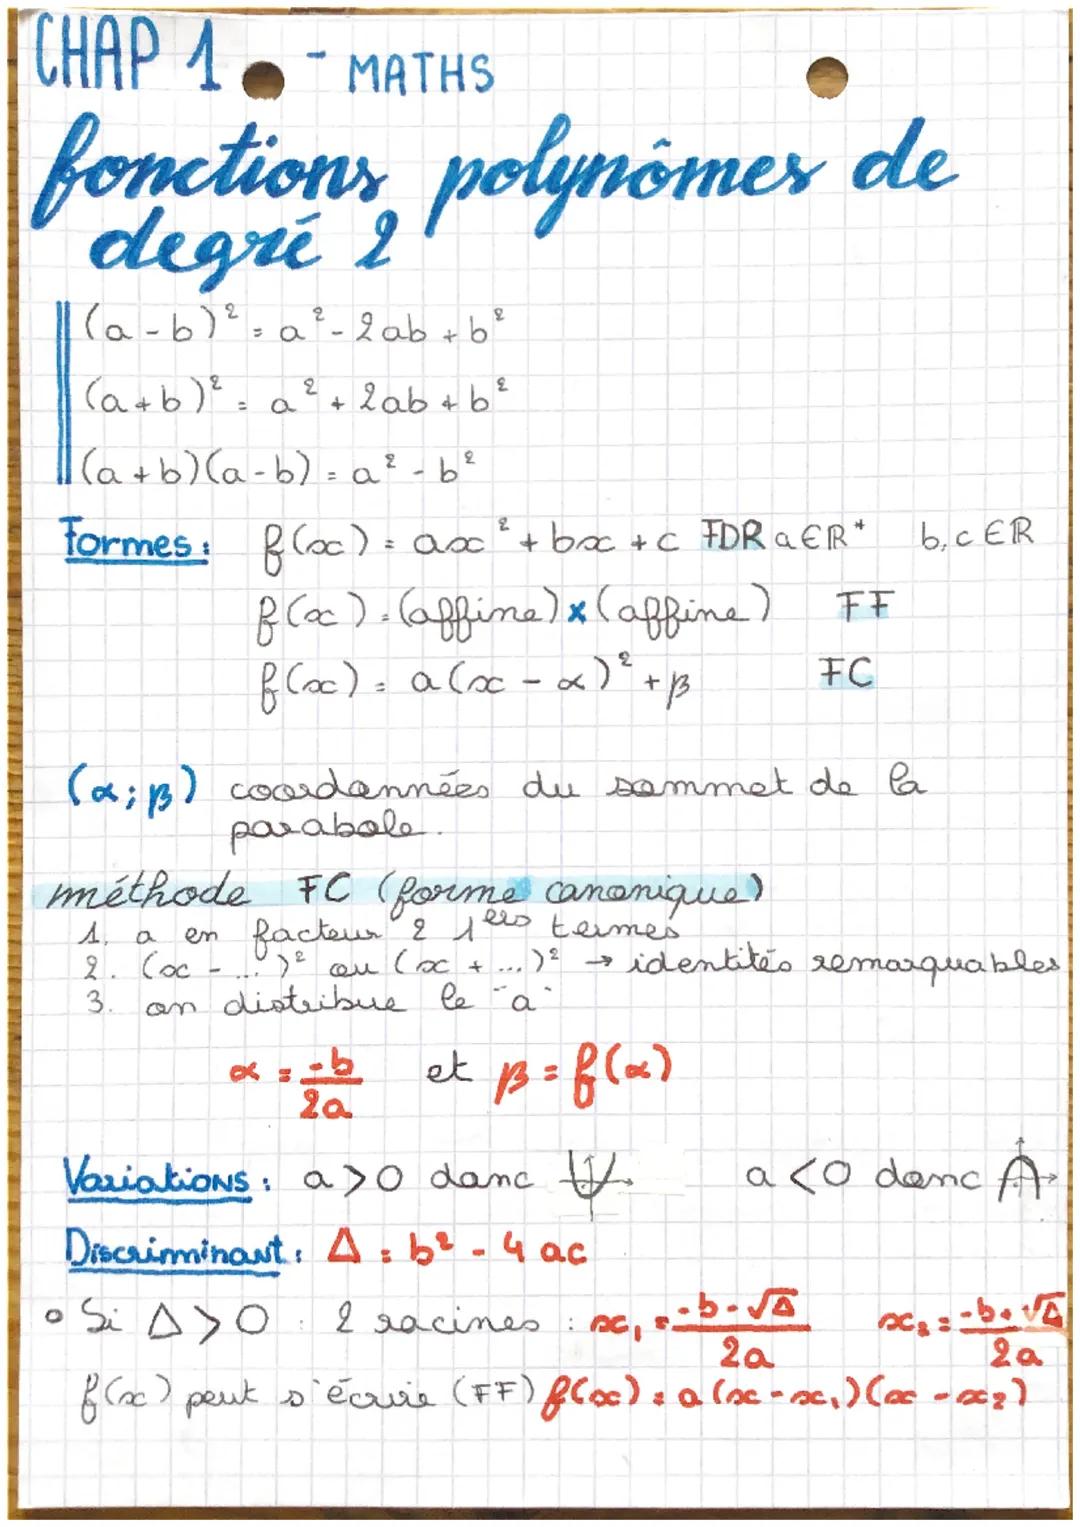 CHAP 1 - MATHS
fonctions polynômes de
degré 2
(a - b)² = a² - 2ab + b²
(a + b)² = a² + 2ab + b²
(a + b)(a - b) = a² - b²
Formes : f(x) = ax² + bx + c FDR a ∈ ℝ* b, c ∈ ℝ
f(x) = (affine) x (affine) FF
f(x) = a(x - α)² + β FC
(α ; β) coordonnées du sommet de la
parabole.
méthode FC (forme canonique)
1. a en facteur 2 1ers termes
2. (x - ...)² ou (x + ...)² → identités remarquables
3. on distribue le "a"
α = -b/2a et β = f(α)
Variations : a > 0 donc a < 0 donc
Discriminant : Δ = b² - 4 ac
• Si Δ > 0 : 2 racines : x₁ = -b-√Δ/2a x₂ = -b+√Δ/2a
f(x) peut s'écrire (FF) f(x) = a (x - x₁)(x - x₂)